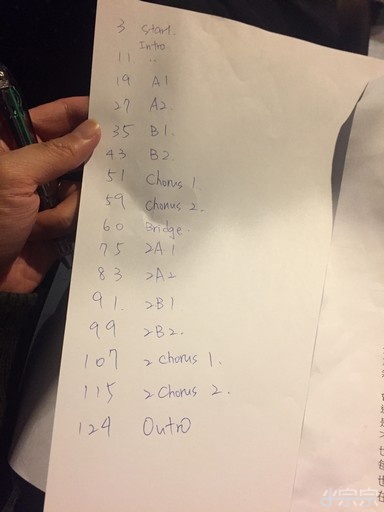 3 Start.
Intro
11 "
19 A1
27 A2.
35 B1.
43 B2
51 Chorus 1
59 Chorus 2.
60 Bridge.
75 2A.1
83 2A2
91. 2B.1
99 2B2.
107 2 Chorus 1.
115 2 Chorus 2.
124 Outro